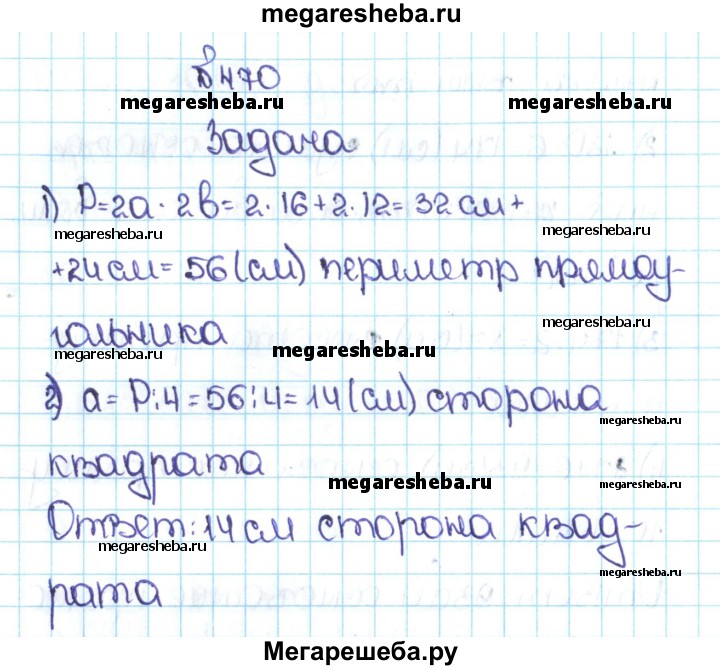 megaresheba.ru
№ 470
megaresheba.ru megaresheba.ru
Задача
1) P=2a · 2b = 2·16+2·12= 32 см +
megaresheba.ru megaresheba.ru
+24 см = 56 (см) периметр прямоу-
гольника megaresheba.ru
megaresheba.ru megaresheba.ru
2) a = P:4 = 56:4 = 14 (см) сторона
megaresheba.ru
квадрата
megaresheba.ru megaresheba.ru
Ответ: 14 см сторона квад-
megaresheba.ru megaresheba.ru
рата
Мегарешеба.ру